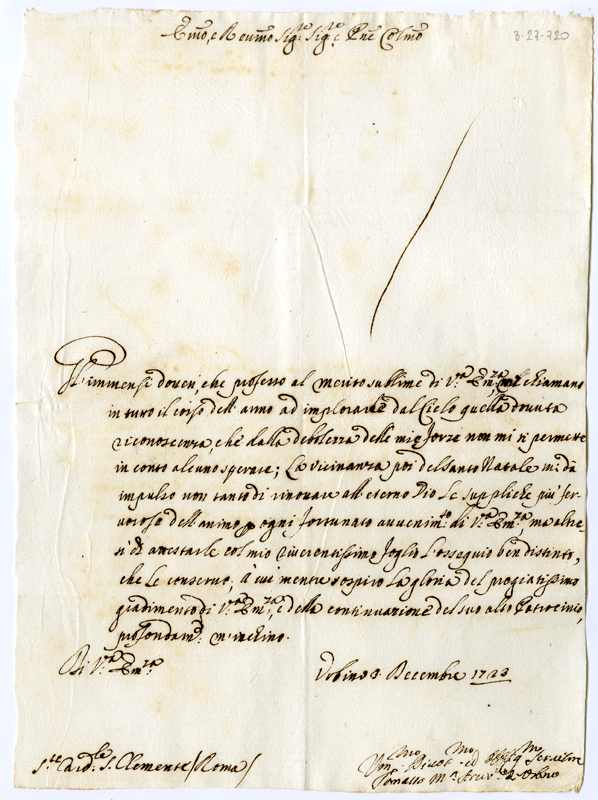 Emo, e Reumo Sig:re Sig:re e Pne Colmo
3-27-720
Gl'immensi doueri, che professo al merito sublime di V.ra Em.za, mi chiamano
in tutto il corso dell'anno ad implorare dal Cielo quella douuta
riconoscenza, che dalla debolezza delle mie forze non mi si permette
in conto alcuno sperare; La vicinanza poi del Santo Natale mi da
impulso non tanto di rinouare all'eterno Dio le suppliche piu' fer-
uorose dell'animo p ogni fortunato auuenim:to di V.ra Em.za, ma altre-
si di attestarle col mio riuerentissimo foglio l'ossequio ben distinto,
che le conseruo, à cui mentre sospiro la gloria del pregiatissimo
gradimento di V.ra Em.za, e della continuazione del suo alto Patrocinio,
profondam:te m'inchino.
Di V.ra Em.za
Urbino 3 Decembre 1723
S.re Card:le S. Clemente / Roma /
Um:mo Diuot:mo ed Obblig:mo Seruitore
Tomasso M.a Arciv:o d'Urbino